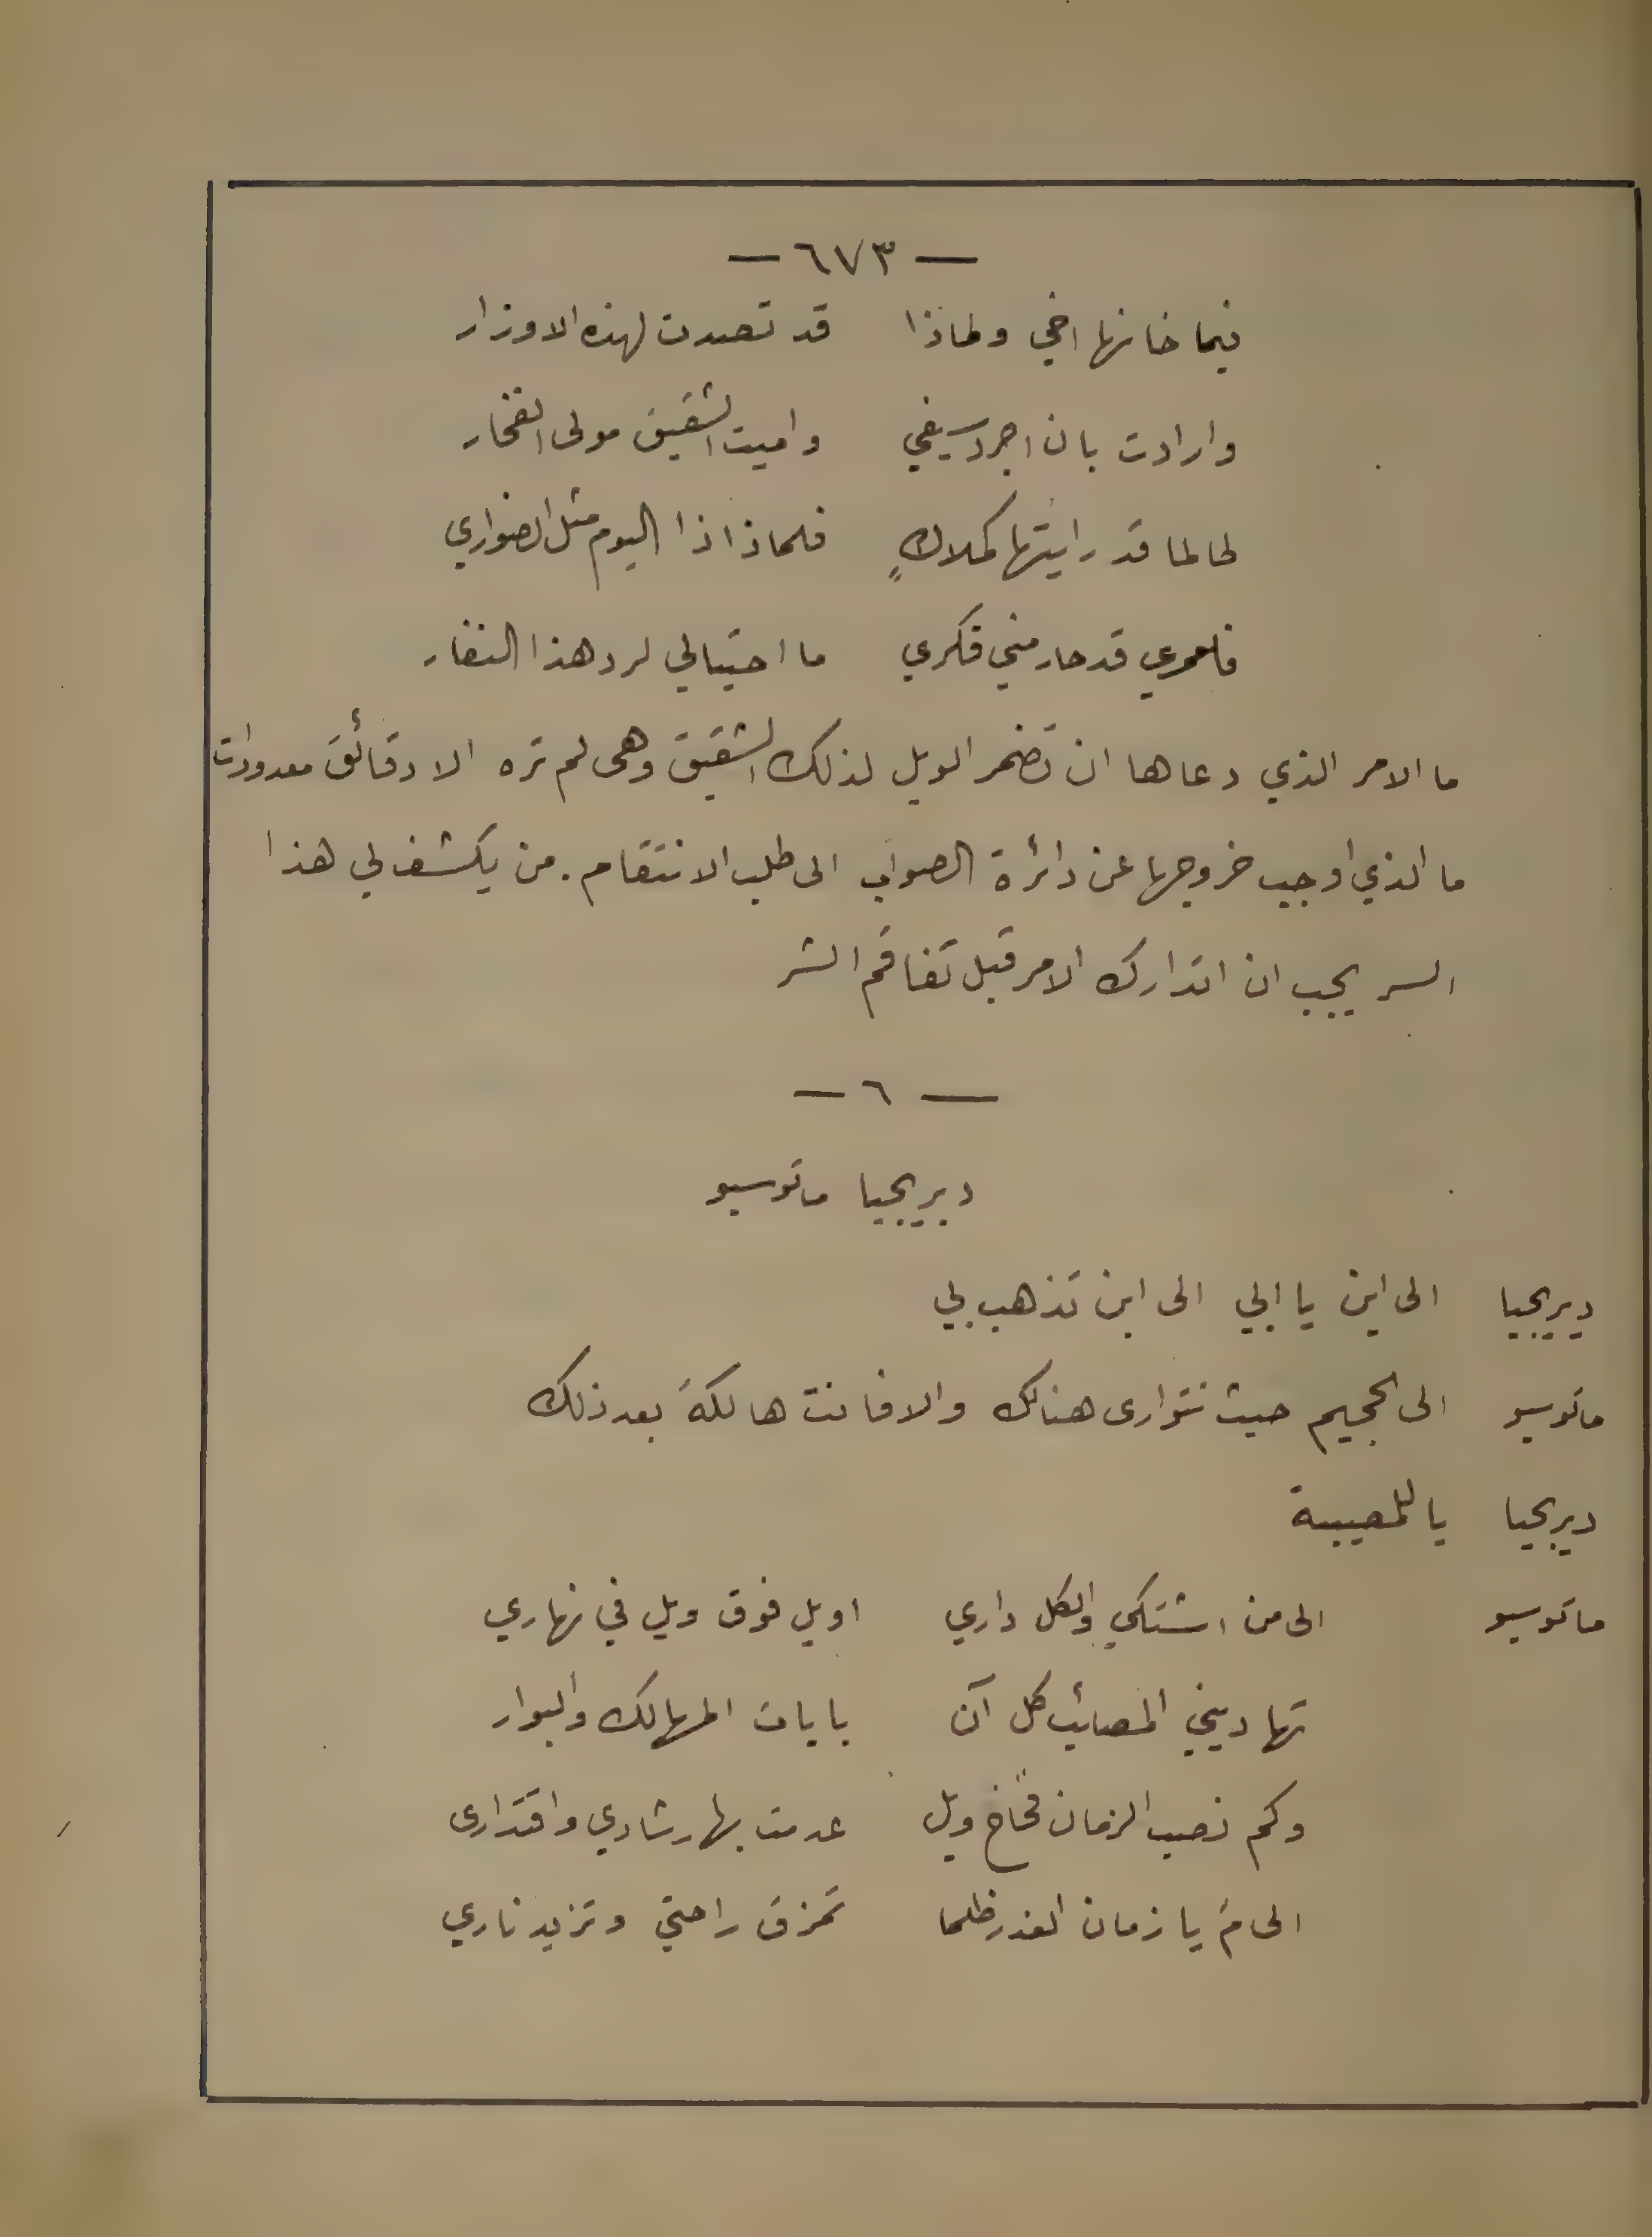 — ٦٧٣ —
فيما خانها اخي ولماذا قد تصدت لهذه الاوزار
وارادت بان اجرد سيفي واميت الشقيق مولى الفخار
لطالما قد رايتها كملاكٍ فلماذا ذا اليوم مثل الضواري
فلعمري قد حار مني فكري ما احتيالي لرد هذا النفار
ما الامر الذي دعاها ان تضمر الويل لذلك الشقيق وهي لم تره الا دقائق معدودات
ما الذي اوجب خروجها عن دائرة الصواب الى طلب الانتقام . من يكشف لي هذا
السر يجب ان اتدارك الامر قبل تفاقم الشر
— ٦ —
ديريجيا ماتوسيو
ديريجيا الى اين يا ابي الى اين تذهب بي
ماتوسيو الى الجحيم حيث نتوارى هنالك والا فانت هالكة بعد ذلك
ديريجيا يا للمصيبة
ماتوسيو الى من اشتكي والكل داري اويل فوق ويل في نهاري
تهاديني المصائب كل آن بايات المهالك والبوار
وكم نصب الزمان فخاخ ويل عدمت بها رشادي واقتدارى
الى مَ يا زمان الغدر ظلما تمزق راحتي وتزيد ناري